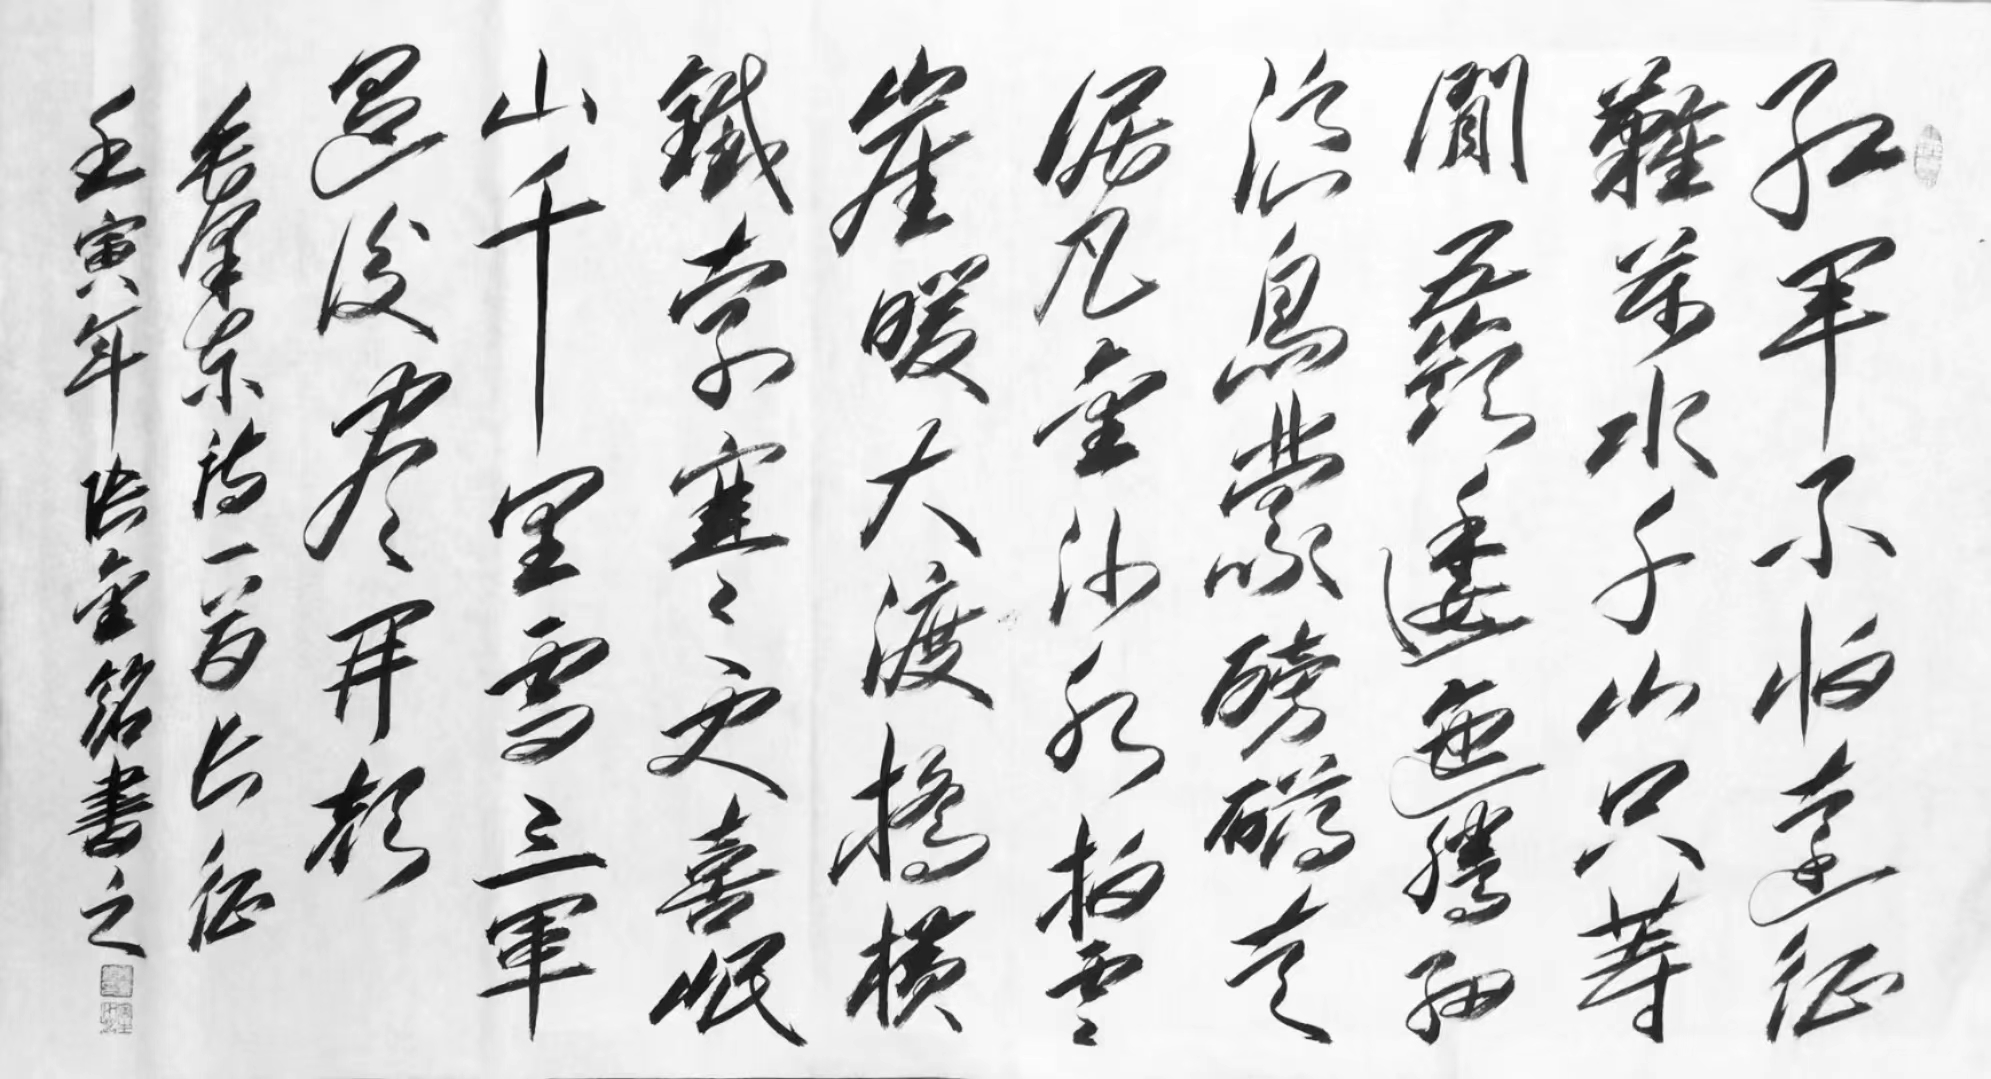 红军不怕远征
難萬水千山只等
閒五嶺逶迤騰细
浪烏蒙磅礴走
泥丸金沙水拍雲
崖暖大渡橋横
鐵索寒々更喜岷
山千里雪三軍
過後尽開顔
毛澤東詩一首长征
壬寅年張金銘書之